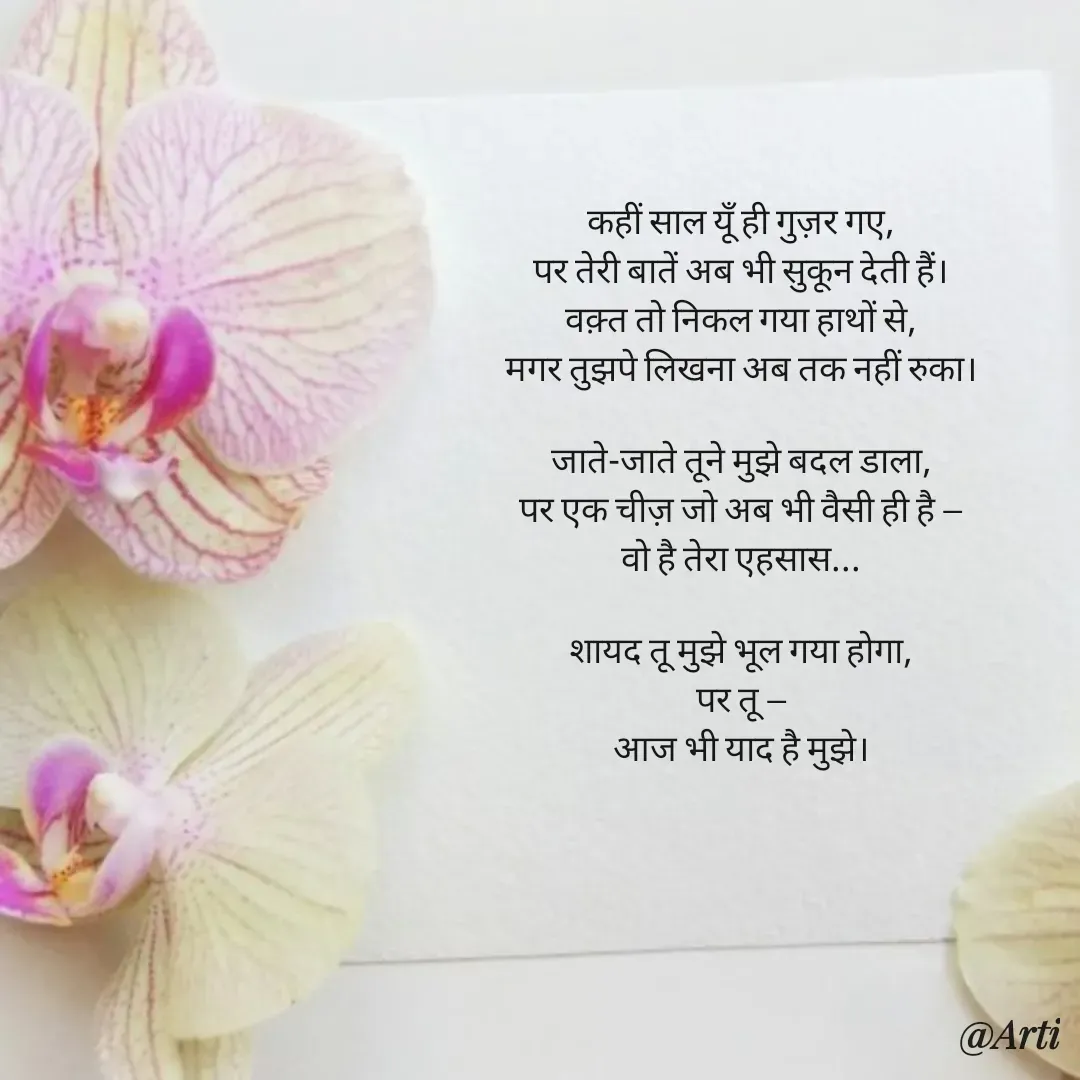 कहीं साल यूँ ही गुज़र गए,
पर तेरी बातें अब भी सुकून देती हैं।
वक़्त तो निकल गया हाथों से,
मगर तुझपे लिखना अब तक नहीं रुका।
जाते-जाते तूने मुझे बदल डाला,
पर एक चीज़ जो अब भी वैसी ही है –
वो है तेरा एहसास...
शायद तू मुझे भूल गया होगा,
पर तू –
आज भी याद है मुझे।
@Arti